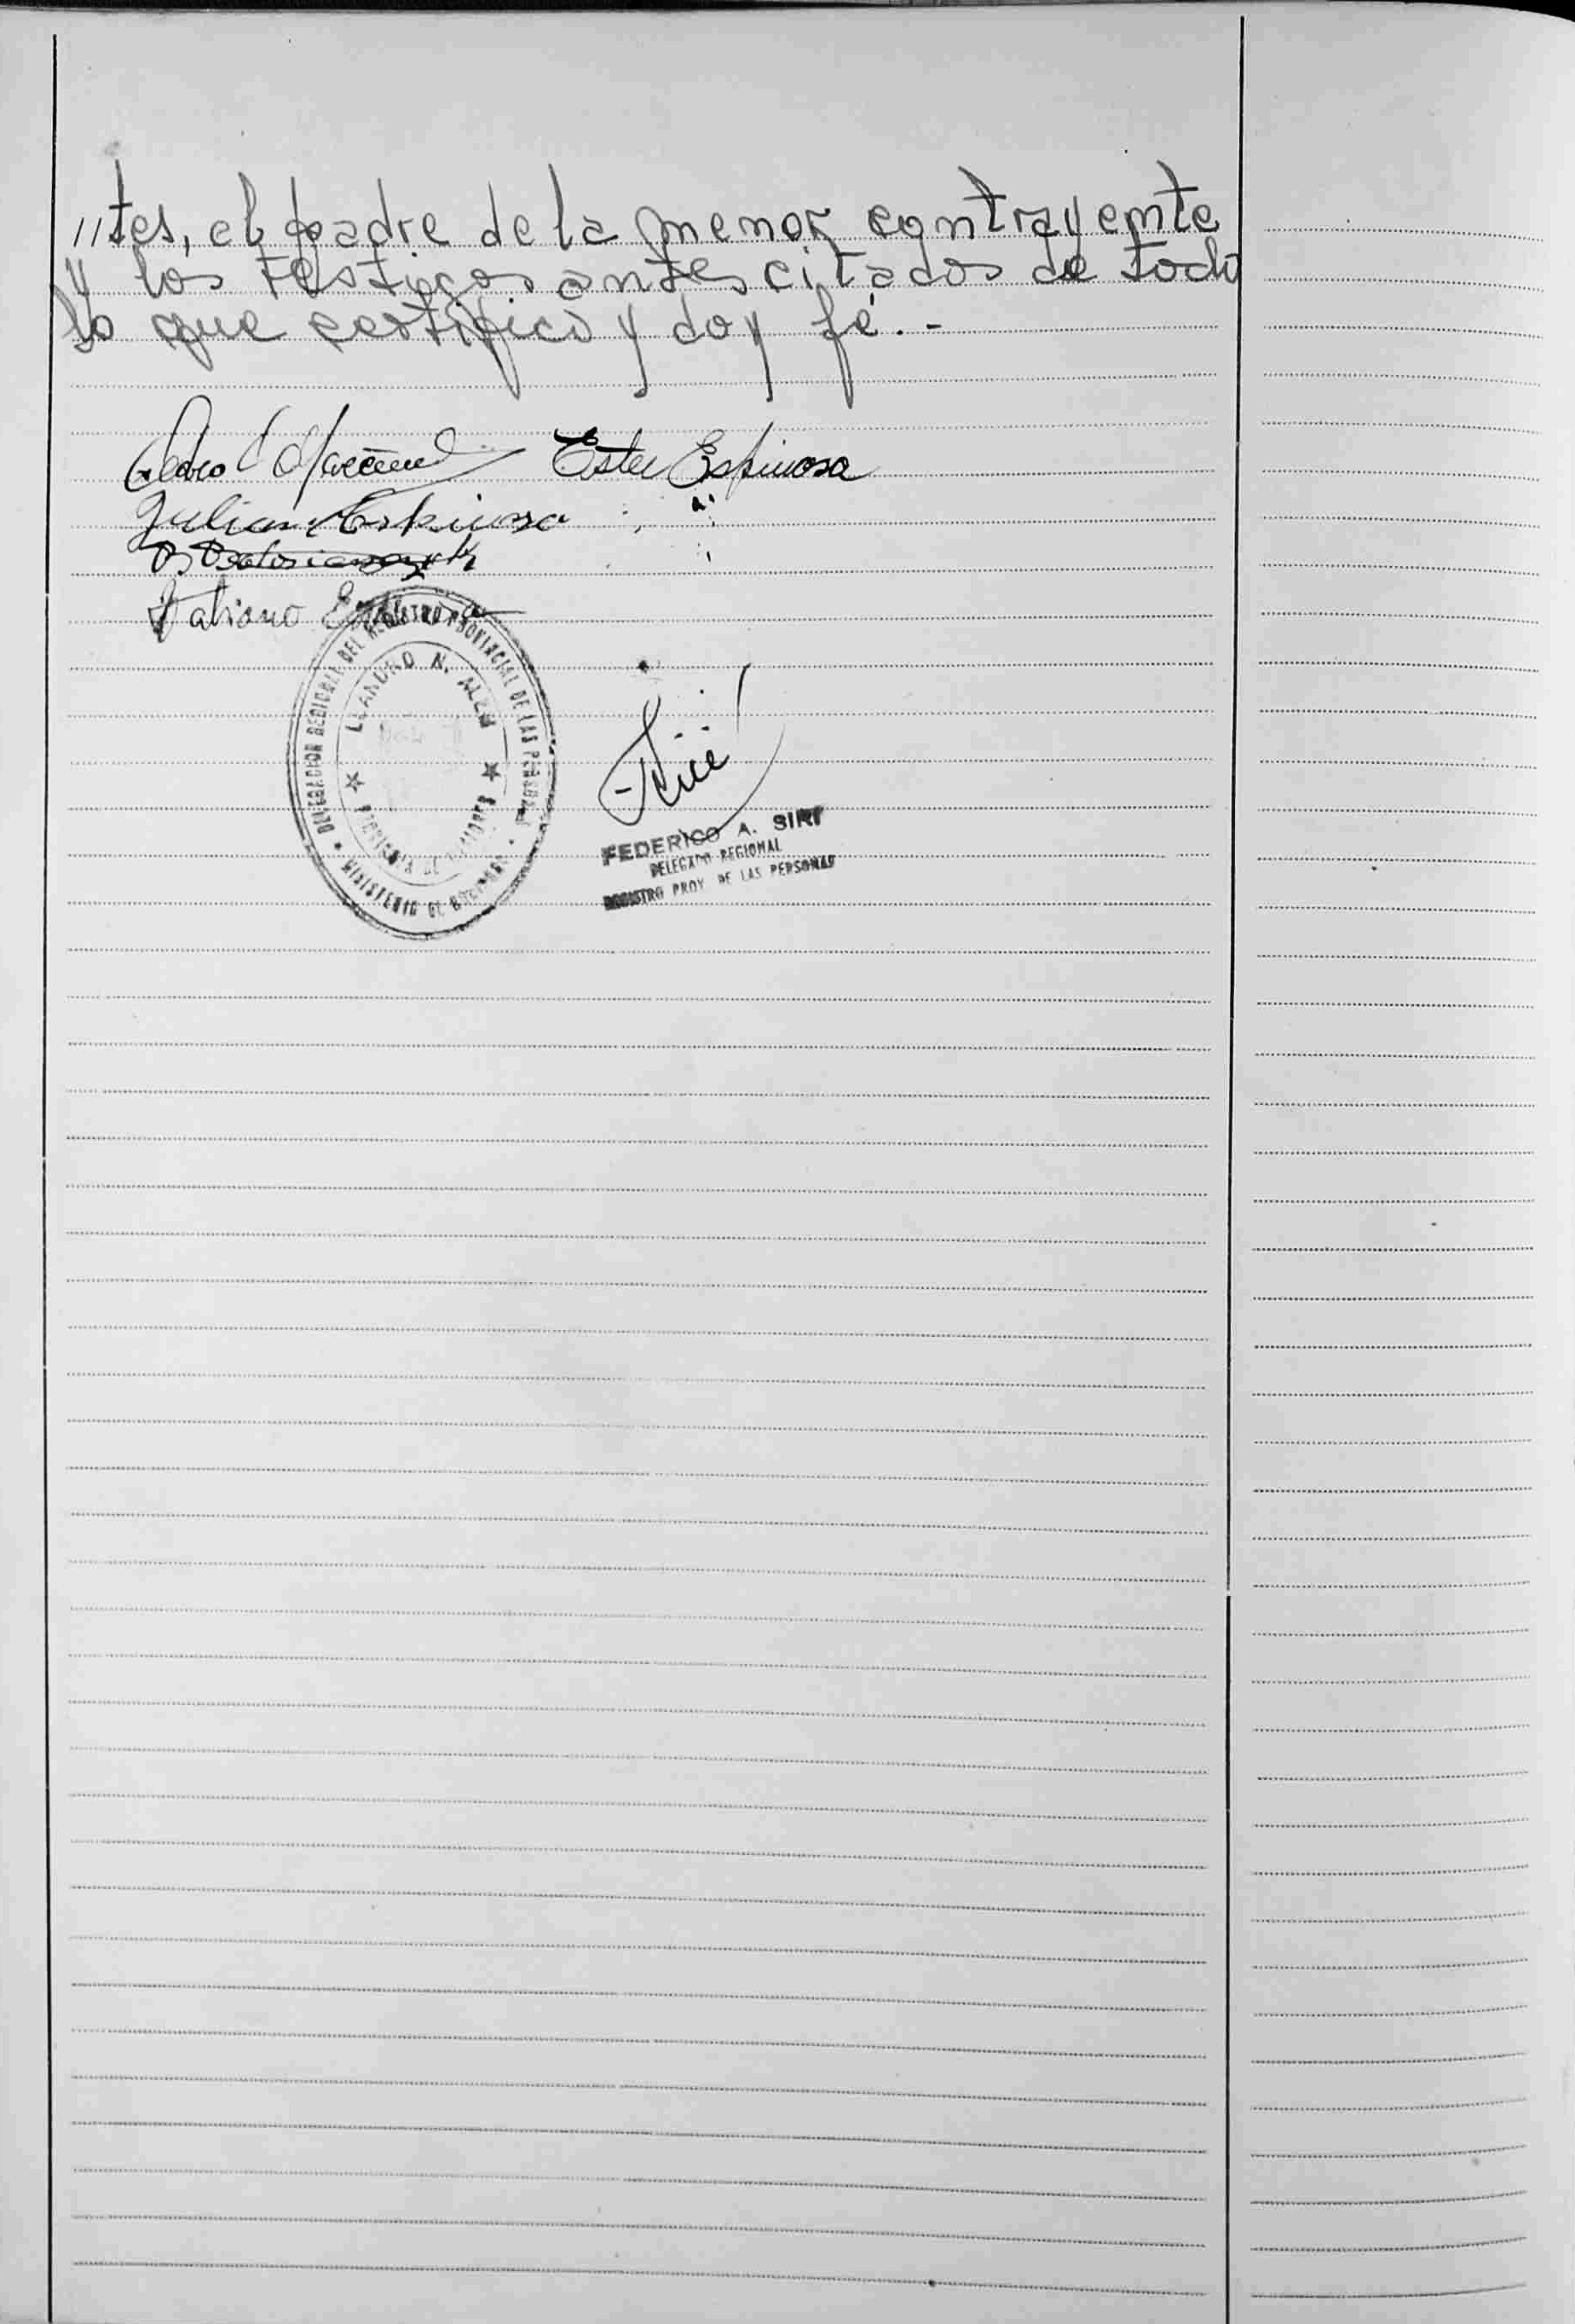 //tes, el padre de la menor contrayente
y los testigos antes citados de todo
lo que certifico y doy fé.-
Pedro Ester Espinosa
Julian Espinosa
Fabiano
DELEGACION REGIONAL DEL REGISTRO PROVINCIAL DE LAS PERSONAS
LEANDRO N. ALEM
PROVINCIA DE MISIONES
MINISTERIO DE GOBIERNO
FEDERICO A. SIRI
DELEGADO REGIONAL
REGISTRO PROV. DE LAS PERSONAS